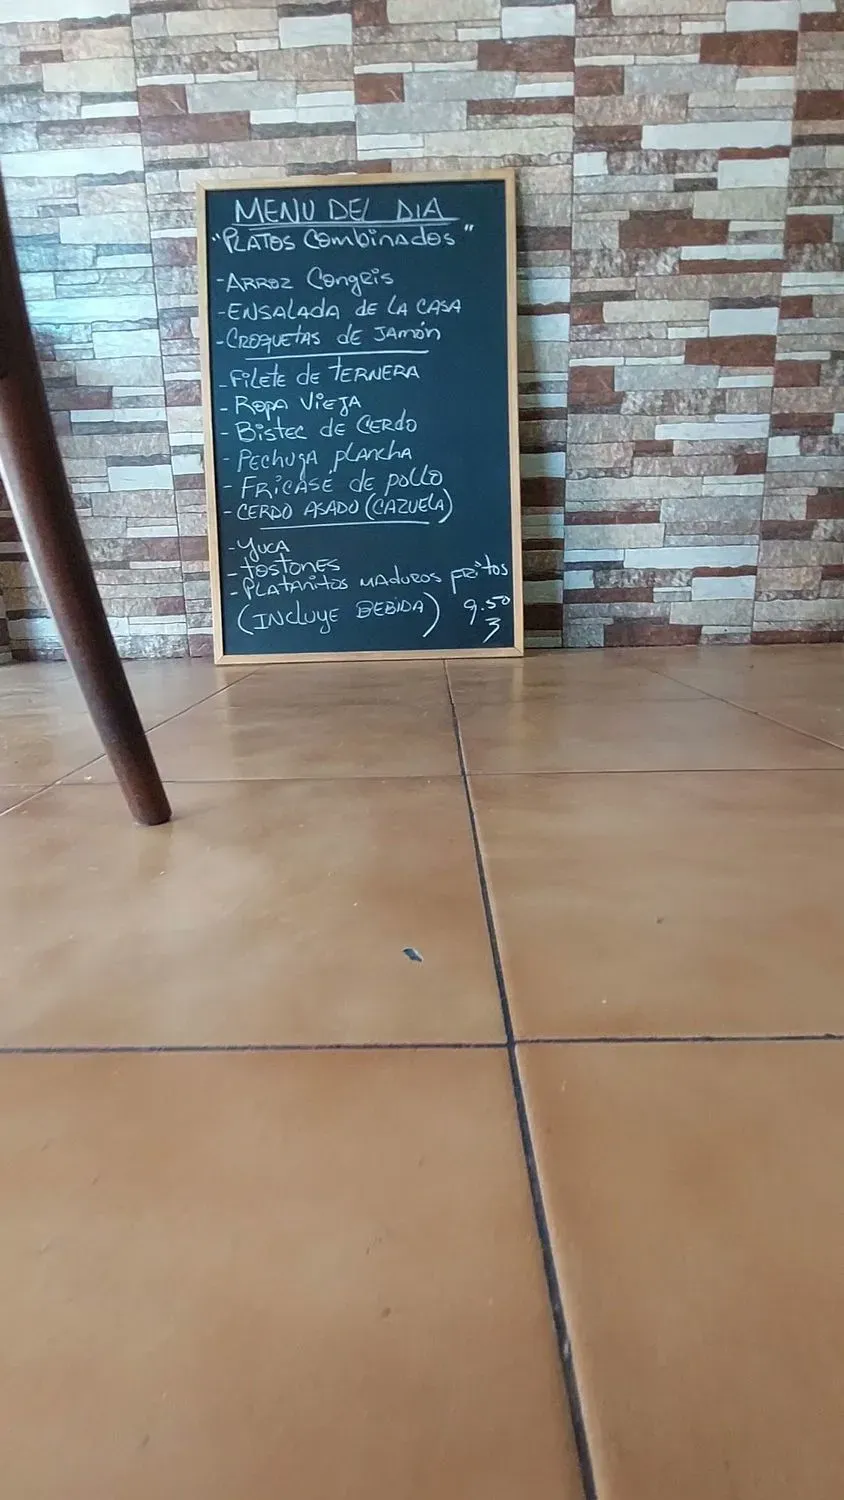 MENU DEL DIA
"PLATOS COMBINADOS"
- ARROZ CONGRIS
- ENSALADA DE LA CASA
- CROQUETAS DE JAMÓN
- FILETE DE TERNERA
- ROPA VIEJA
- BISTEC DE CERDO
- PECHUGA PLANCHA
- FRICASÉ DE POLLO
- CERDO ASADO (CAZUELA)
- YUCA
- TOSTONES
- PLATANITOS MADUROS FRITOS
(INCLUYE BEBIDA) 9.50
3